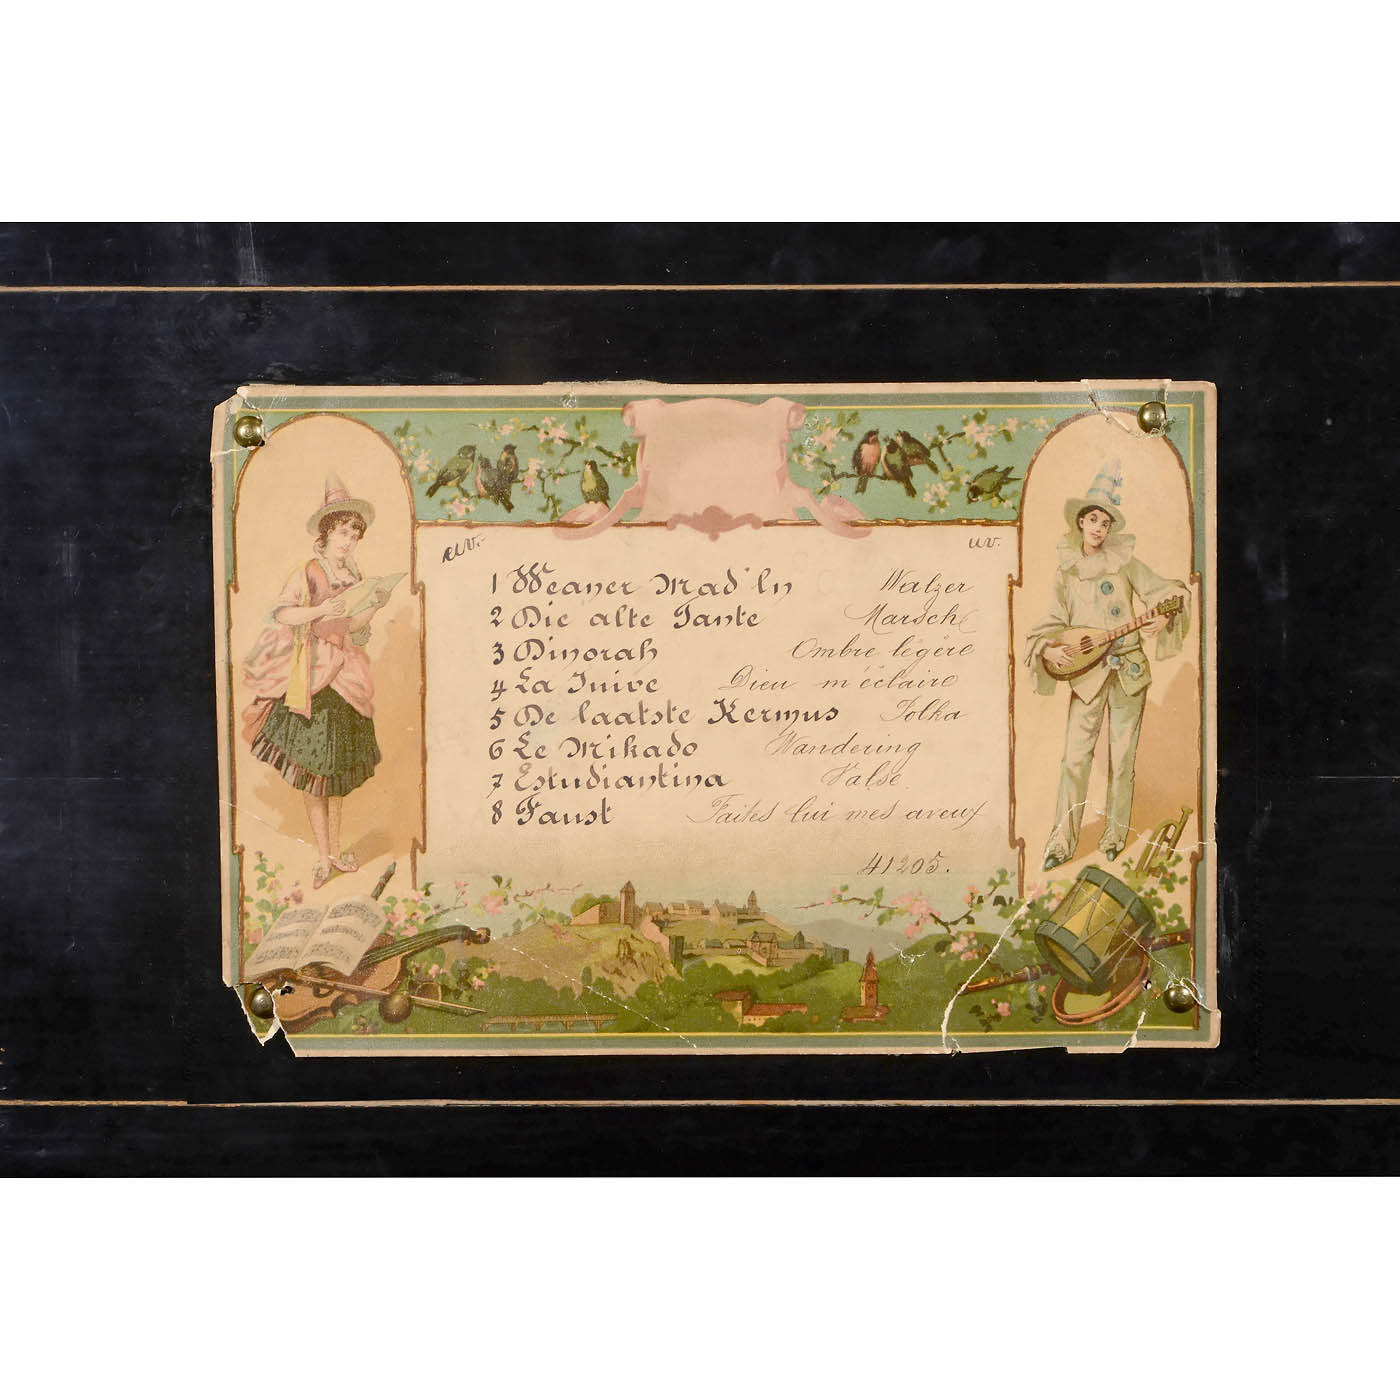 uv. uv.
1 Weaner Mad'ln Walzer
2 Die alte Tante Marsch
3 Dinorah Ombre légère
4 La Juive Dieu m'éclaire
5 De laatste Kermus Polka
6 Le Mikado Wandering
7 Estudiantina Valse
8 Faust Faites lui mes aveux
41205.